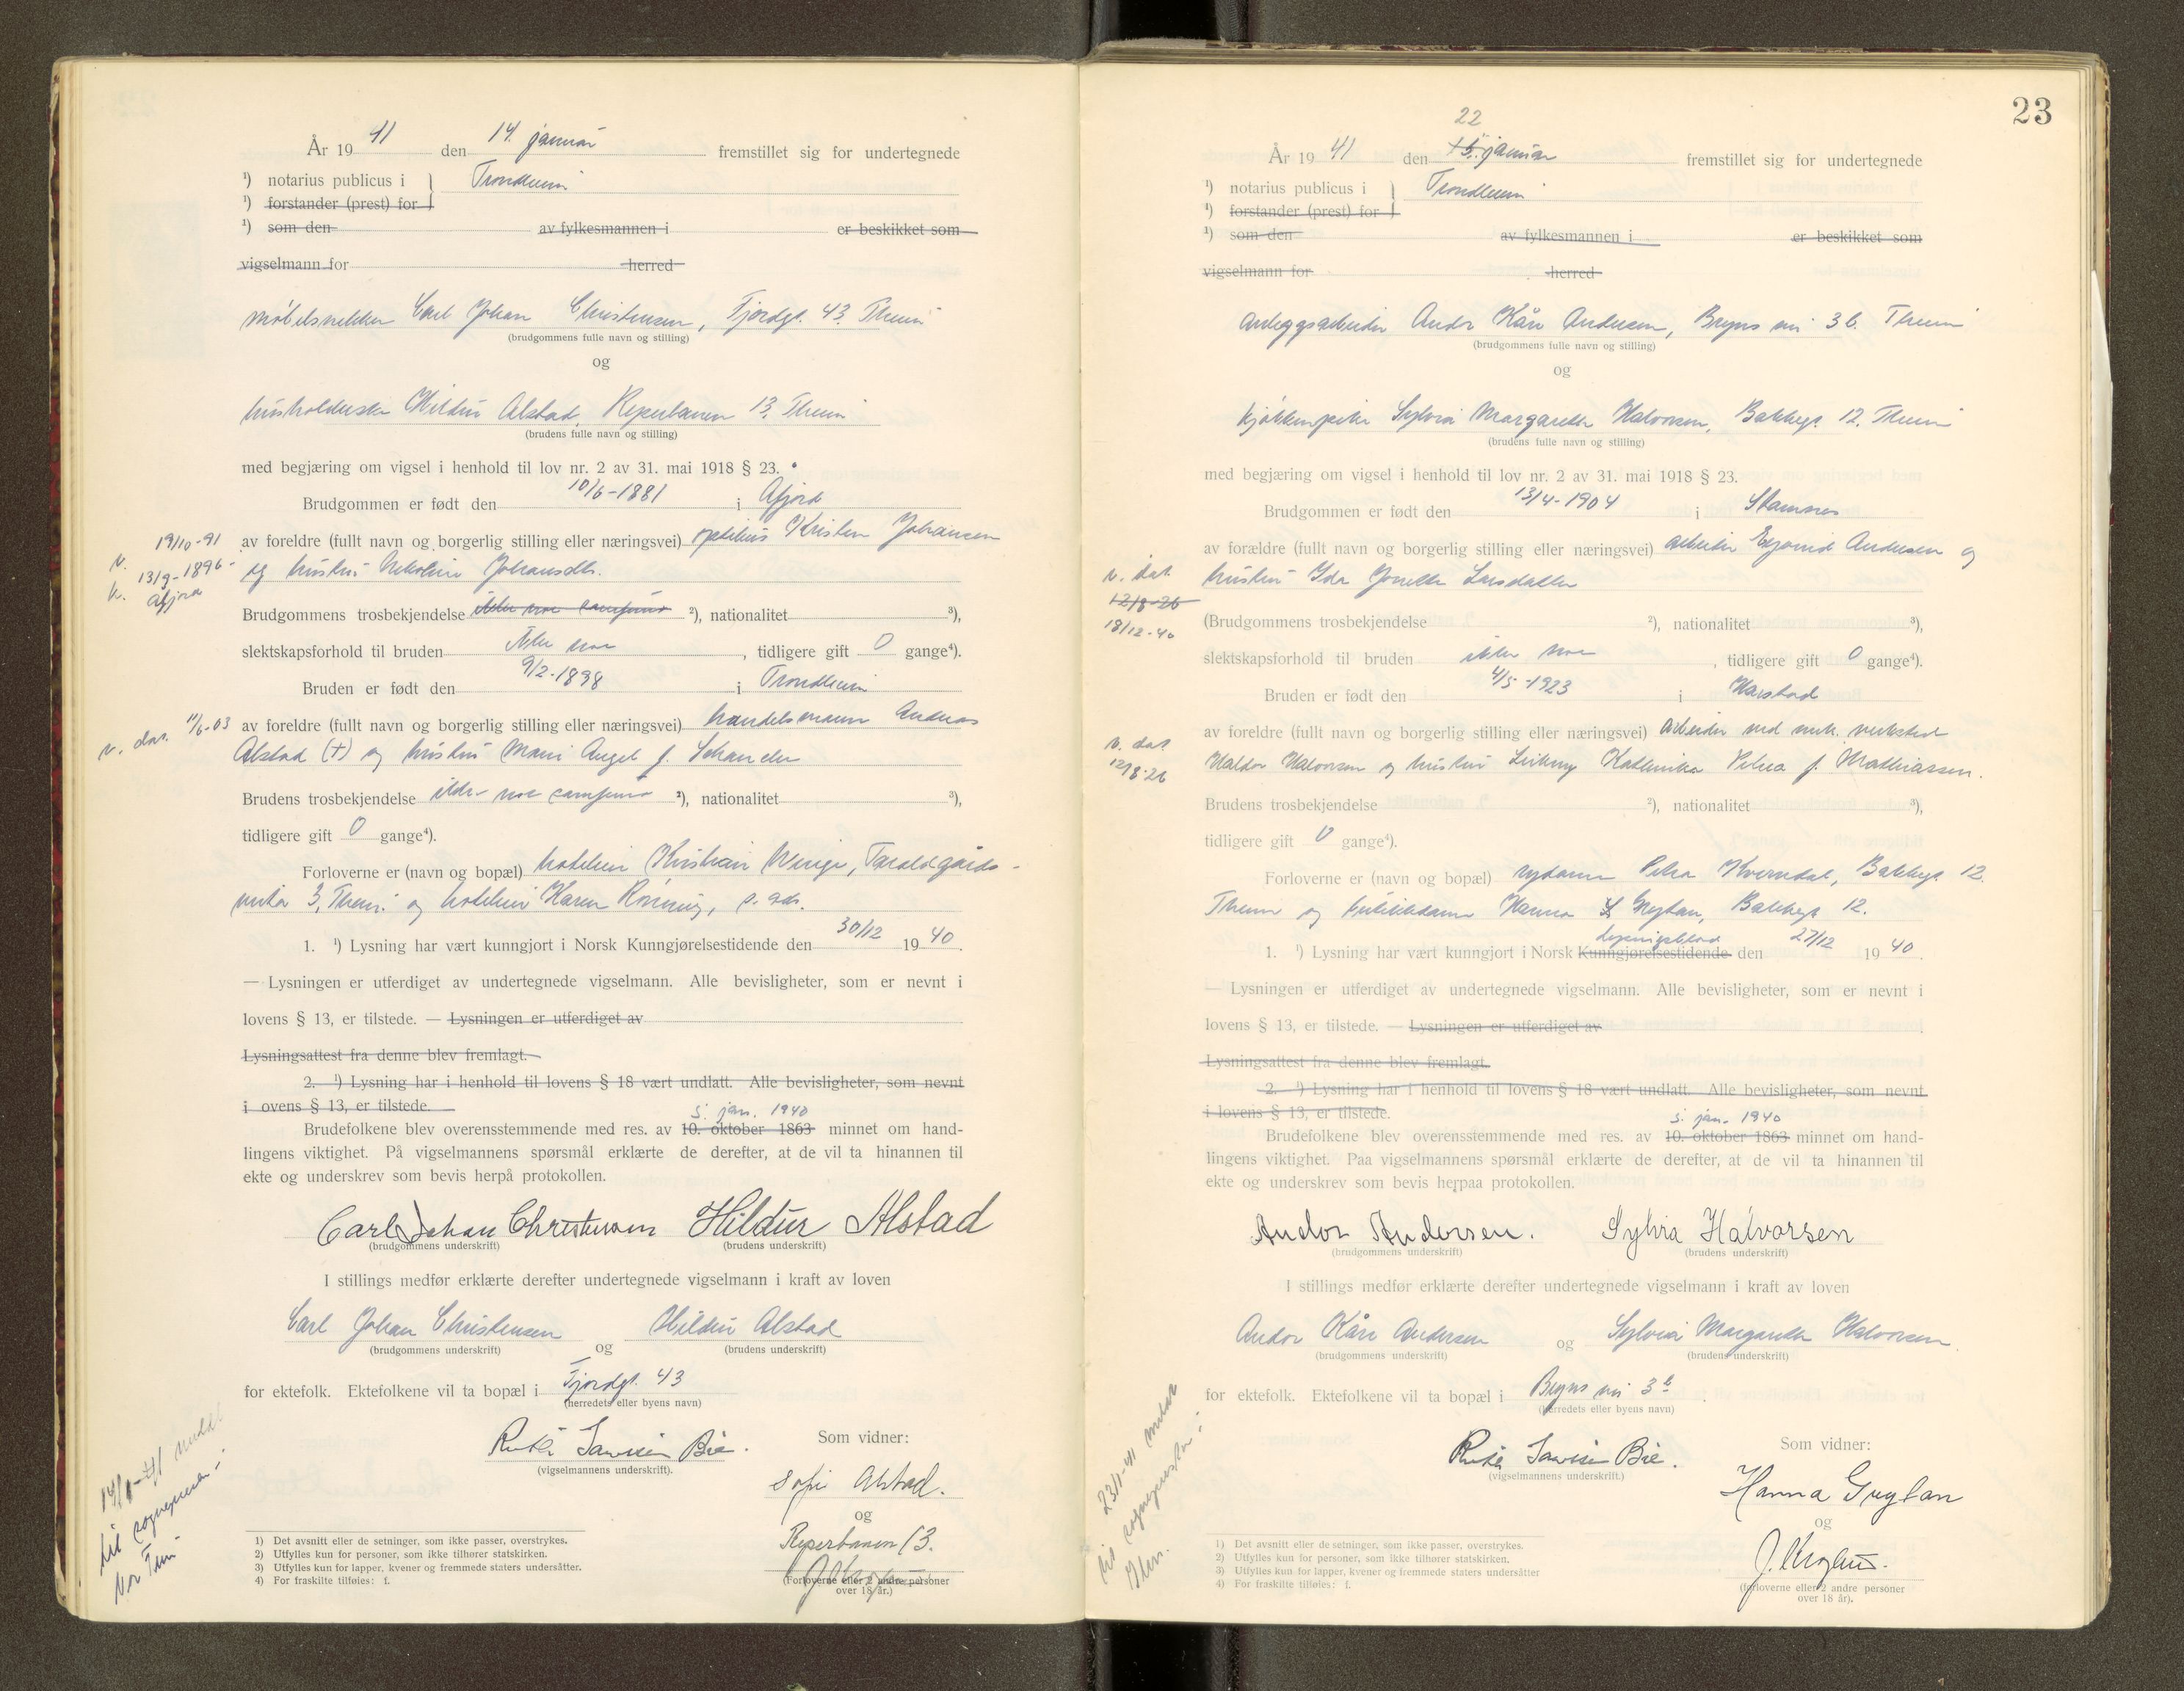 År 19 41 den 14. januar fremstillet sig for undertegnede
¹) notarius publicus i } Trondheim
¹) forstander (prest) for
¹) som den av fylkesmannen i er beskikket som
vigselmann for herred
møbelsnekker Carl Johan Christensen, Fjordgt. 43. Theim
(brudgommens fulle navn og stilling)
og
husholderske Hildur Alstad, Reperbanen 13. Theim
(brudens fulle navn og stilling)
med begjæring om vigsel i henhold til lov nr. 2 av 31. mai 1918 § 23.
Brudgommen er født den 10/6-1881 i Afjord
19/10-91 av foreldre (fullt navn og borgerlig stilling eller næringsvei) Kristen Johansen
v. k. 13/9-1896- Afjord
og hustru Johansdtr.
Brudgommens trosbekjendelse ²), nationalitet ³),
slektskapsforhold til bruden Ikke noe, tidligere gift 0 gange⁴).
Bruden er født den 9/2-1898 i Trondheim
v. dat. 11/6-03 av foreldre (fullt navn og borgerlig stilling eller næringsvei) handelsmann Andreas
Alstad (†) og hustru Marie Angel f. Schancher
Brudens trosbekjendelse ikke noe samfunn ²), nationalitet ³),
tidligere gift 0 gange⁴).
Forloverne er (navn og bopæl) Kristian Taraldgårds-
veita 3, Theim og Karen Rønning, s. ads.
1. ¹) Lysning har vært kunngjort i Norsk Kunngjørelsestidende den 30/12 19 40.
— Lysningen er utferdiget av undertegnede vigselmann. Alle bevisligheter, som er nevnt i
lovens § 13, er tilstede. — Lysningen er utferdiget av
Lysningsattest fra denne blev fremlagt.
2. ¹) Lysning har i henhold til lovens § 18 vært undlatt. Alle bevisligheter, som nevnt
i ovens § 13, er tilstede.
5. jan. 1940
Brudefolkene blev overensstemmende med res. av 10. oktober 1863 minnet om hand-
lingens viktighet. På vigselmannens spørsmål erklærte de derefter, at de vil ta hinannen til
ekte og underskrev som bevis herpå protokollen.
Carl Johan Christensen Hildur Alstad
(brudgommens underskrift) (brudens underskrift)
I stillings medfør erklærte derefter undertegnede vigselmann i kraft av loven
Carl Johan Christensen og Hildur Alstad
(brudgommens underskrift) (brudens underskrift)
for ektefolk. Ektefolkene vil ta bopæl i Fjordgt. 43
(herredets eller byens navn)
Bie.
(vigselmannens underskrift).
Som vidner:
Sofie Alstad.
og
Reperbanen 13.
(Forloverne eller 2 andre personer
over 18 år.)
14/1-41 meldt
til sognepresten i
Vor Frue
1) Det avsnitt eller de setninger, som ikke passer, overstrykes.
2) Utfylles kun for personer, som ikke tilhører statskirken.
3) Utfylles kun for lapper, kvener og fremmede staters undersåtter.
4) For fraskilte tilføies: f.
23
22
År 19 41 den 15. januar fremstillet sig for undertegnede
¹) notarius publicus i } Trondheim
¹) forstander (prest) for
¹) som den av fylkesmannen i er beskikket som
vigselmann for herred
anleggsarbeider Andor Kåre Andersen, Bryns vei 3b. Theim
(brudgommens fulle navn og stilling)
og
kjøkkenpike Sylvia Margarethe Halvorsen, Bakkegt. 12. Theim
(brudens fulle navn og stilling)
med begjæring om vigsel i henhold til lov nr. 2 av 31. mai 1918 § 23.
Brudgommen er født den 13/4-1904 i Stamnes
av forældre (fullt navn og borgerlig stilling eller næringsvei) arbeider Eyvind Andersen og
v. dat. 12/8-26 18/12-40
hustru Ida Jonette Larsdatter
(Brudgommens trosbekjendelse ²), nationalitet ³),
slektskapsforhold til bruden ikke noe, tidligere gift 0 gange⁴).
Bruden er født den 4/5-1923 i Harstad
av foreldre (fullt navn og borgerlig stilling eller næringsvei) arbeider ved mek. verksted
v. dat. 12/8-26
Haldor Halvorsen og hustru Kathinka Petrea f. Mathiassen.
Brudens trosbekjendelse ²), nationalitet ³),
tidligere gift 0 gange⁴).
Forloverne er (navn og bopæl) sydame Petra Kverndal, Bakkegt. 12.
Theim og Hanna Grytan, Bakkegt 12.
Lysningsblad
1. ¹) Lysning har vært kunngjort i Norsk Kunngjørelsestidende den 27/12 19 40.
— Lysningen er utferdiget av undertegnede vigselmann. Alle bevisligheter, som er nevnt i
lovens § 13, er tilstede. — Lysningen er utferdiget av
Lysningsattest fra denne blev fremlagt.
2. ¹) Lysning har i henhold til lovens § 18 vært undlatt. Alle bevisligheter, som nevnt
i lovens § 13, er tilstede.
5. jan. 1940
Brudefolkene blev overensstemmende med res. av 10. oktober 1863 minnet om hand-
lingens viktighet. Paa vigselmannens spørsmål erklærte de derefter, at de vil ta hinannen til
ekte og underskrev som bevis herpaa protokollen.
Andor Andersen. Sylvia Halvorsen
(brudgommens underskrift) (brudens underskrift)
I stillings medfør erklærte derefter undertegnede vigselmann i kraft av loven
Andor Kåre Andersen og Sylvia Margarethe Halvorsen.
(brudgommens underskrift) (brudens underskrift)
for ektefolk. Ektefolkene vil ta bopæl i Bryns vei 3b.
(herredets eller byens navn)
Bie.
(vigselmannens underskrift).
Som vidner:
Hanna Grytan
og
(forloverne eller 2 andre personer
over 18 år).
23/1-41 meldt
til sognepresten i
Ilen.
1) Det avsnitt eller de setninger, som ikke passer, overstrykes.
2) Utfylles kun for personer, som ikke tilhører statskirken.
3) Utfylles kun for lapper, kvener og fremmede staters undersåtter
4) For fraskilte tilføies: f.